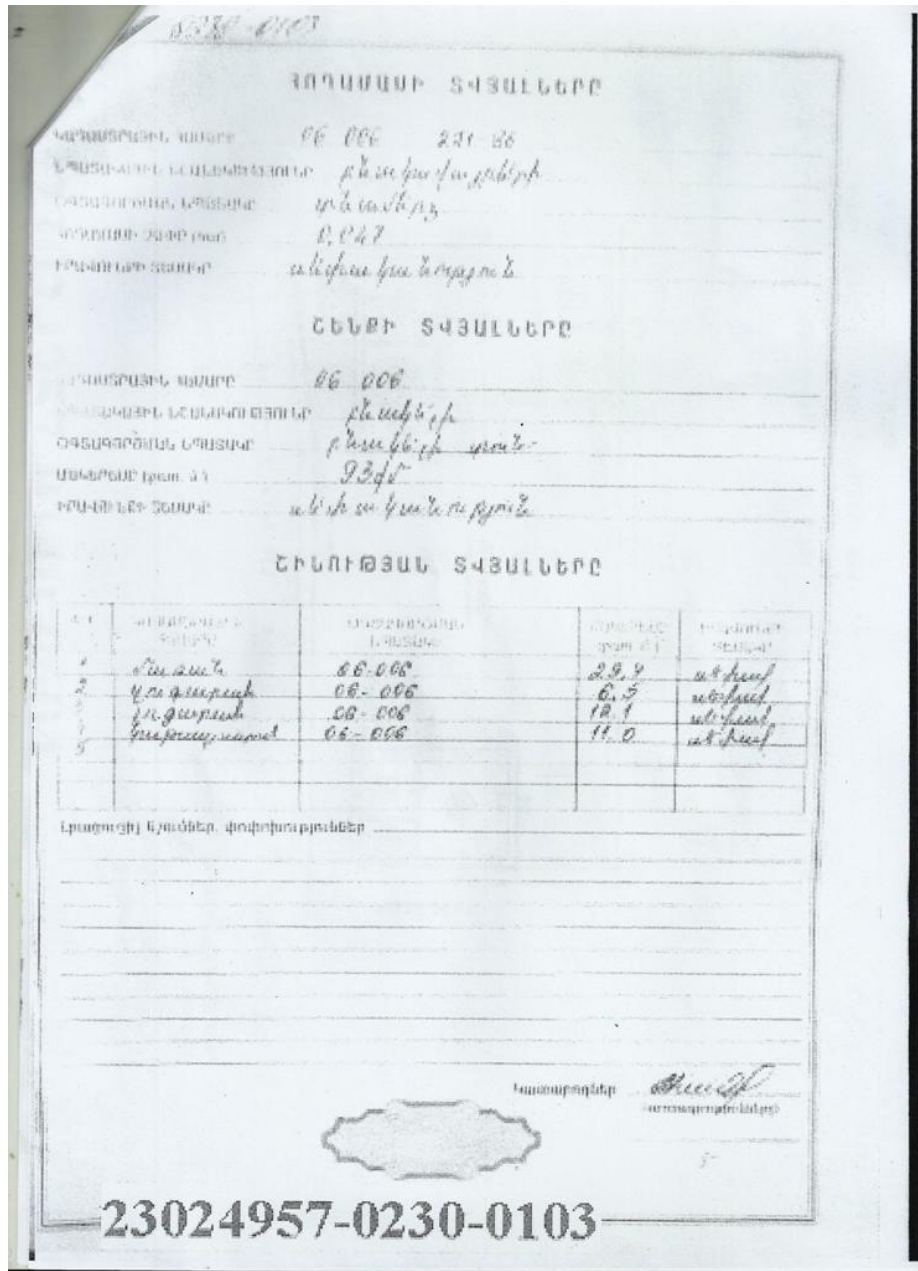 0230-0103
ՀՈՂԱՄԱՍԻ ՏՎՅԱԼՆԵՐԸ
ԿԱԴԱՍՏՐԱՅԻՆ ՀԱՄԱՐԸ 06 006
ՆՊԱՏԱԿԱՅԻՆ ՆՇԱՆԱԿՈՒԹՅՈՒՆԸ բնակավայրերի
ՕԳՏԱԳՈՐԾՄԱՆ ՆՊԱՏԱԿԸ տնամերձ
ՀՈՂԱՄԱՍԻ ՉԱՓԸ (հա) 0,047
ԻՐԱՎՈՒՆՔԻ ՏԵՍԱԿԸ սեփականություն
ՇԵՆՔԻ ՏՎՅԱԼՆԵՐԸ
ԿԱԴԱՍՏՐԱՅԻՆ ՀԱՄԱՐԸ 06 006
ՆՊԱՏԱԿԱՅԻՆ ՆՇԱՆԱԿՈՒԹՅՈՒՆԸ բնակելի
ՕԳՏԱԳՈՐԾՄԱՆ ՆՊԱՏԱԿԸ բնակելի տուն
ՄԱԿԵՐԵՍԸ (քառ. մ.) 93քմ
ԻՐԱՎՈՒՆՔԻ ՏԵՍԱԿԸ սեփականություն
ՇԻՆՈՒԹՅԱՆ ՏՎՅԱԼՆԵՐԸ
ՕԳՏԱԳՈՐԾՄԱՆ ՆՊԱՏԱԿԸ ՄԱԿԵՐԵՍԸ (քառ. մ.) ԻՐԱՎՈՒՆՔԻ ՏԵՍԱԿԸ
1 մառան 06-006 սեփակ
2 զուգարան 06-006 6.5 սեփակ
զուգարան 06-006 սեփակ
06-006 11.0 սեփակ
5
Լրացուցիչ նշումներ, փոփոխություններ
Կատարողներ
(ստորագրություններ)
23024957-0230-0103